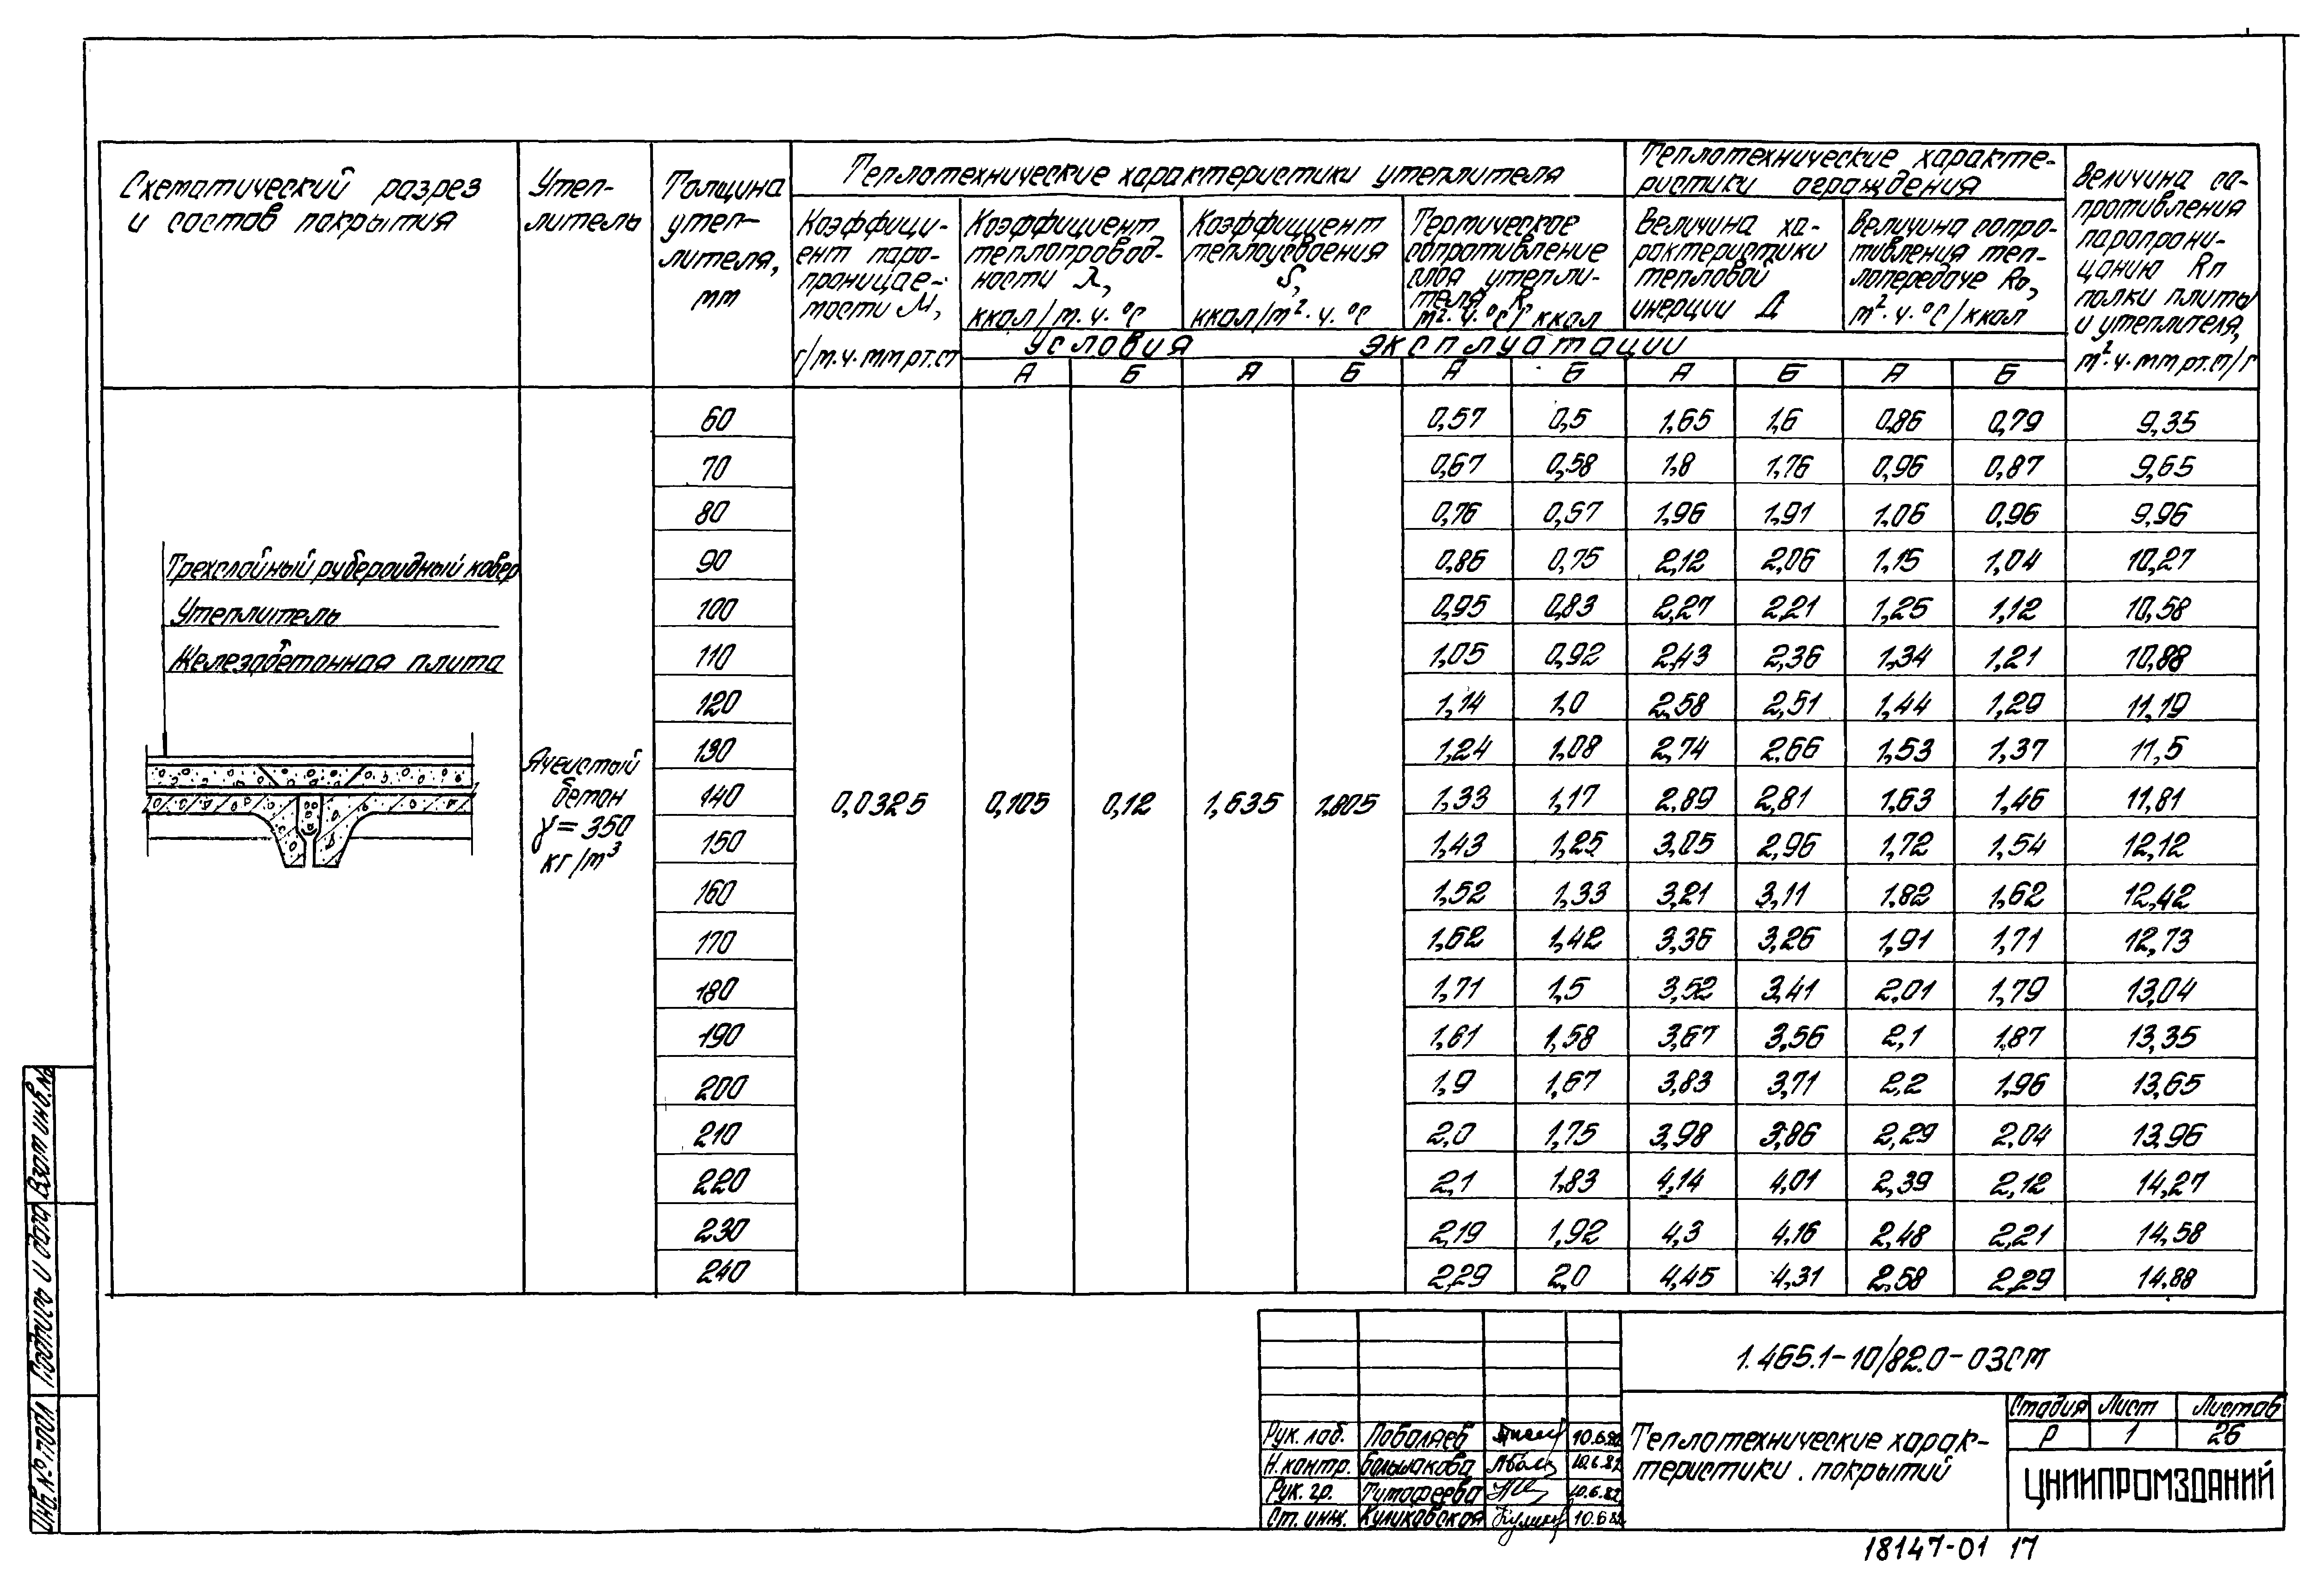 Схематический разрез
и состав покрытия
Утеп-
литель
Толщина
утеп-
лителя,
мм
Теплотехнические характеристики утеплителя
Коэффици-
ент паро-
проницае-
мости М,
г/м.ч.мм рт.ст
Коэффициент
теплопровод-
ности λ,
ккал/м.ч.°С
Коэффициент
теплоусвоения
S,
ккал/м².ч.°С
Термическое
сопротивление
слоя утепли-
теля R,
м².ч.°С/ккал
Теплотехнические характе-
ристики ограждения
Величина ха-
рактеристики
тепловой
инерции Д
Величина сопро-
тивления теп-
лопередаче Ro,
м².ч.°С/ккал
Величина со-
противления
паропрони-
цанию Rп
полки плиты
и утеплителя,
м².ч.мм рт.ст/г
Условия эксплуатации
А Б Я Б А Б А Б А Б
60 0,57 0,5 1,65 1,6 0,86 0,79 9,35
70 0,67 0,58 1,8 1,76 0,96 0,87 9,65
80 0,76 0,67 1,96 1,91 1,06 0,96 9,96
90 0,86 0,75 2,12 2,06 1,15 1,04 10,27
100 0,95 0,83 2,27 2,21 1,25 1,12 10,58
110 1,05 0,92 2,43 2,36 1,34 1,21 10,88
120 1,14 1,0 2,58 2,51 1,44 1,29 11,19
130 1,24 1,08 2,74 2,66 1,53 1,37 11,5
140 1,33 1,17 2,89 2,81 1,63 1,46 11,81
150 1,43 1,25 3,05 2,96 1,72 1,54 12,12
160 1,52 1,33 3,21 3,11 1,82 1,62 12,42
170 1,62 1,42 3,36 3,26 1,91 1,71 12,73
180 1,71 1,5 3,52 3,41 2,01 1,79 13,04
190 1,61 1,58 3,67 3,56 2,1 1,87 13,35
200 1,9 1,67 3,83 3,71 2,2 1,96 13,65
210 2,0 1,75 3,98 3,86 2,29 2,04 13,96
220 2,1 1,83 4,14 4,01 2,39 2,12 14,27
230 2,19 1,92 4,3 4,16 2,48 2,21 14,58
240 2,29 2,0 4,45 4,31 2,58 2,29 14,88
Трехслойный рубероидный ковер
Утеплитель
Железобетонная плита
Ячеистый
бетон
γ = 350
кг/м³
0,0325 0,105 0,12 1,635 1,805
1.465.1-10/82.0-03СМ
Теплотехнические харак-
теристики покрытий
Стадия Лист Листов
Р 1 26
ЦНИИПРОМЗДАНИЙ
Рук. лаб. Поваляев 10.6.82
Н. контр. Большакова 10.6.82
Рук. гр. Тимофеева 10.6.82
Ст. инж. Куликовская 10.6.82
18147-01 17
Взам инв.№
Подпись и дата
Инв.№ подл